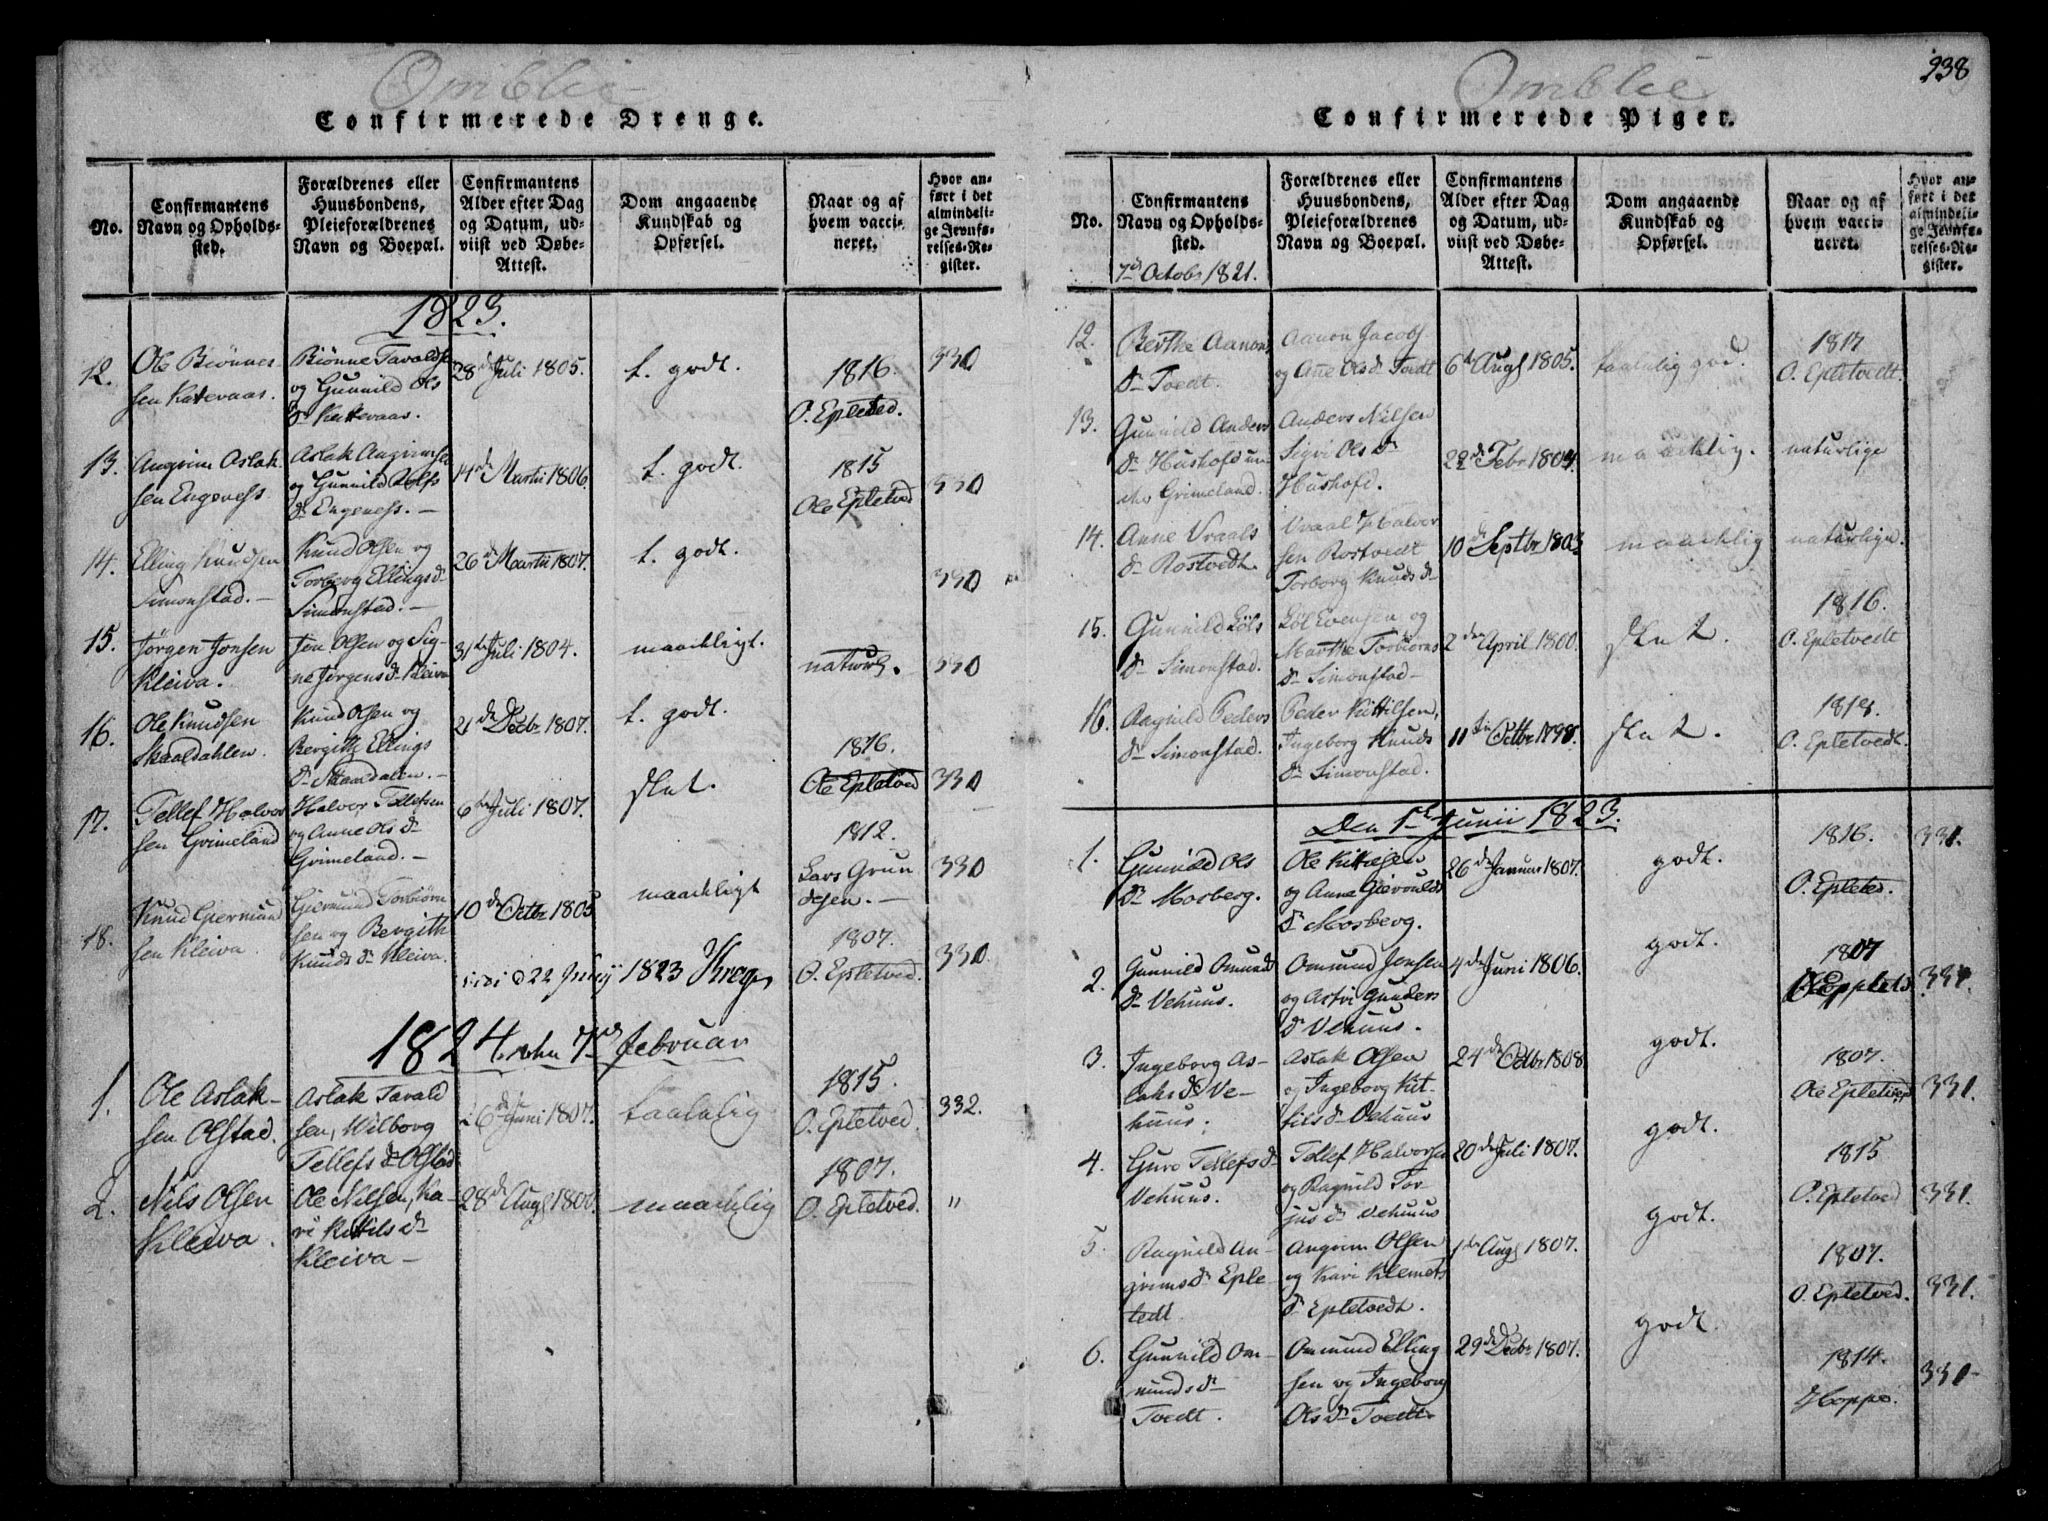 Omblie
Confirmerede Drenge.
No.
Confirmantens
Navn og Opholds-
sted.
Forældrenes eller
Huusbondens,
Pleieforældrenes
Navn og Boepæl.
Confirmantens
Alder efter Dag
og Datum, ud-
viist ved Døbe-
Attest.
Dom angaaende
Kundskab og
Opførsel.
Naar og af
hvem vacci-
neret.
Hvor an-
ført i det
almindeli-
ge Jevnfø-
relses-Re-
gister.
1823.
12.
Ole Biønnes
sen Katteraas.
Biønne Tavalds
og Gunnild Ols
Dr Katteraas.
28de Juli 1805.
t. godt.
1816.
O. Epleted.
330
13.
Angrim Aslak
sen Engeness
Aslak Angrimsen
og Gunnild
Dr Engeness. —
14de Martii 1806.
t. godt.
1815
Ole Epletved
330
14.
Elling Knudsen
Simonstad. —
Knud Olsen og
Torberg Ellings Dr
Simonstad. —
26de Martii 1807.
t. godt.
330
15.
Jørgen Jonsen
Kleiva.
Jon Olsen og Sig-
ne Jørgens Dr Kleiva
31te Juli 1804.
maadeligt.
naturl.
330
16.
Ole Knudsen
Skaaldahlen.
Knud Olsen og
Bergith Ellings
Dr Skaaldalen. —
21de Decbr 1807.
t. godt.
1816.
Ole Epletved
330
17.
Tellef Halvor
sen Grimeland
Halvor Tellefsen
og Anne Ols Dr
Grimeland. —
6te Juli 1807.
slet.
1812.
Lars Grun
desen. —
330
18.
Knud Giermun
sen Kleiva.
Giermund Torbiørn
sen og Bergith
Knuds Dr Kleiva.
10de Octbr 1805
maadeligt
1807.
O. Epletved.
330
22 July 1823
1824. 7de Februar
1.
Ole Aslak-
sen Olstad.
Aslak Tavald
sen, Wilborg
Tellefs Dr Olstad
26de Juni 1807.
taalelig
1815.
O. Epletved.
332.
2.
Nils Olsen
Kleiva.
Ole Nilsen, Ka-
ri Kittils Dr
Kleiva —
28de Augs 1806.
maadelig
1807.
O. Epletved.
"
238
Omblie
Confirmerede Piger.
No.
Confirmantens
Navn og Opholds-
sted.
Forældrenes eller
Huusbondens,
Pleieforældrenes
Navn og Boepæl.
Confirmantens
Alder efter Dag
og Datum, ud-
viist ved Døbe-
Attest.
Dom angaaende
Kundskab og
Opførsel.
Naar og af
hvem vacci-
neret.
Hvor an-
ført i det
almindeli-
ge Jevnfø-
relses-Re-
gister.
7de Octobr 1821.
12.
Berthe Aanons
Dr Tvedt.
Aanon Jacobs
og Anne Ols Dr Tvedt
6te Augs 1805.
taalelig god.
1817
O. Epletvedt.
13.
Gunnild Anders
Dr Hushofd
Grimeland.
Anders Nilsen
Sigri Ols Dr
Hushofd.
22de Febr 1804.
maadelig.
naturlige
14.
Anne Vraals
Dr Rostvedt.
Vraal Halvor
sen Rostvedt
Torborg Knuds Dr
10de Septbr 1803
maadelig
naturlige.
15.
Gunnild Løls
Dr Simonstad.
Løl Evensen og
Marthe Torbiørns
Dr Simonstad —
2den April 1800.
slet.
1816.
O. Epletvedt
16.
Ragnild Peders
Dr Simonstad.
Peder Kittilsen,
Ingeborg Knuds
Dr Simonstad.
11te Octbr 1798.
slet.
O. Epletvedt.
Den 1te Junii 1823.
1.
Gunnild Ols
Dr Mosberg.
Ole Kittilsen
og Anne Giervulds
Dr Mosberg.
26de Januar 1807.
godt.
1816.
O. Epleted.
331.
2.
Gunnild Omunds
Dr Vehuus.
Omund Jensen
og Astri Gunders
Dr Vehuus.
4de Juni 1806.
godt.
1807
Ole Epplets
331.
3.
Ingeborg As-
laks Dr Ve-
huus.
Aslak Olsen
og Ingeborg Kit-
tils Dr Vehuus
24de Octbr 1808
godt.
1807.
Ole Epletved
331.
4.
Guro Tellefs Dr
Vehuus.
Tellef Halvorsen
og Ragnild Tor
jus Dr Vehuus
20de Juli 1807.
godt.
1815
O. Epletved
331.
5.
Ragnild An-
grims Dr Eple
tedt.
Angrim Olsen
og Kari Klemets
Dr Epletvedt.
1te Augs 1807.
godt.
1807.
O. Epletved.
331.
6.
Gunnild Om-
munds Dr
Tvedt.
Ommund Elling
sen og Ingeborg
Ols Dr Tvedt.
29de Decbr 1807.
godt.
1814.
Hoppe.
331